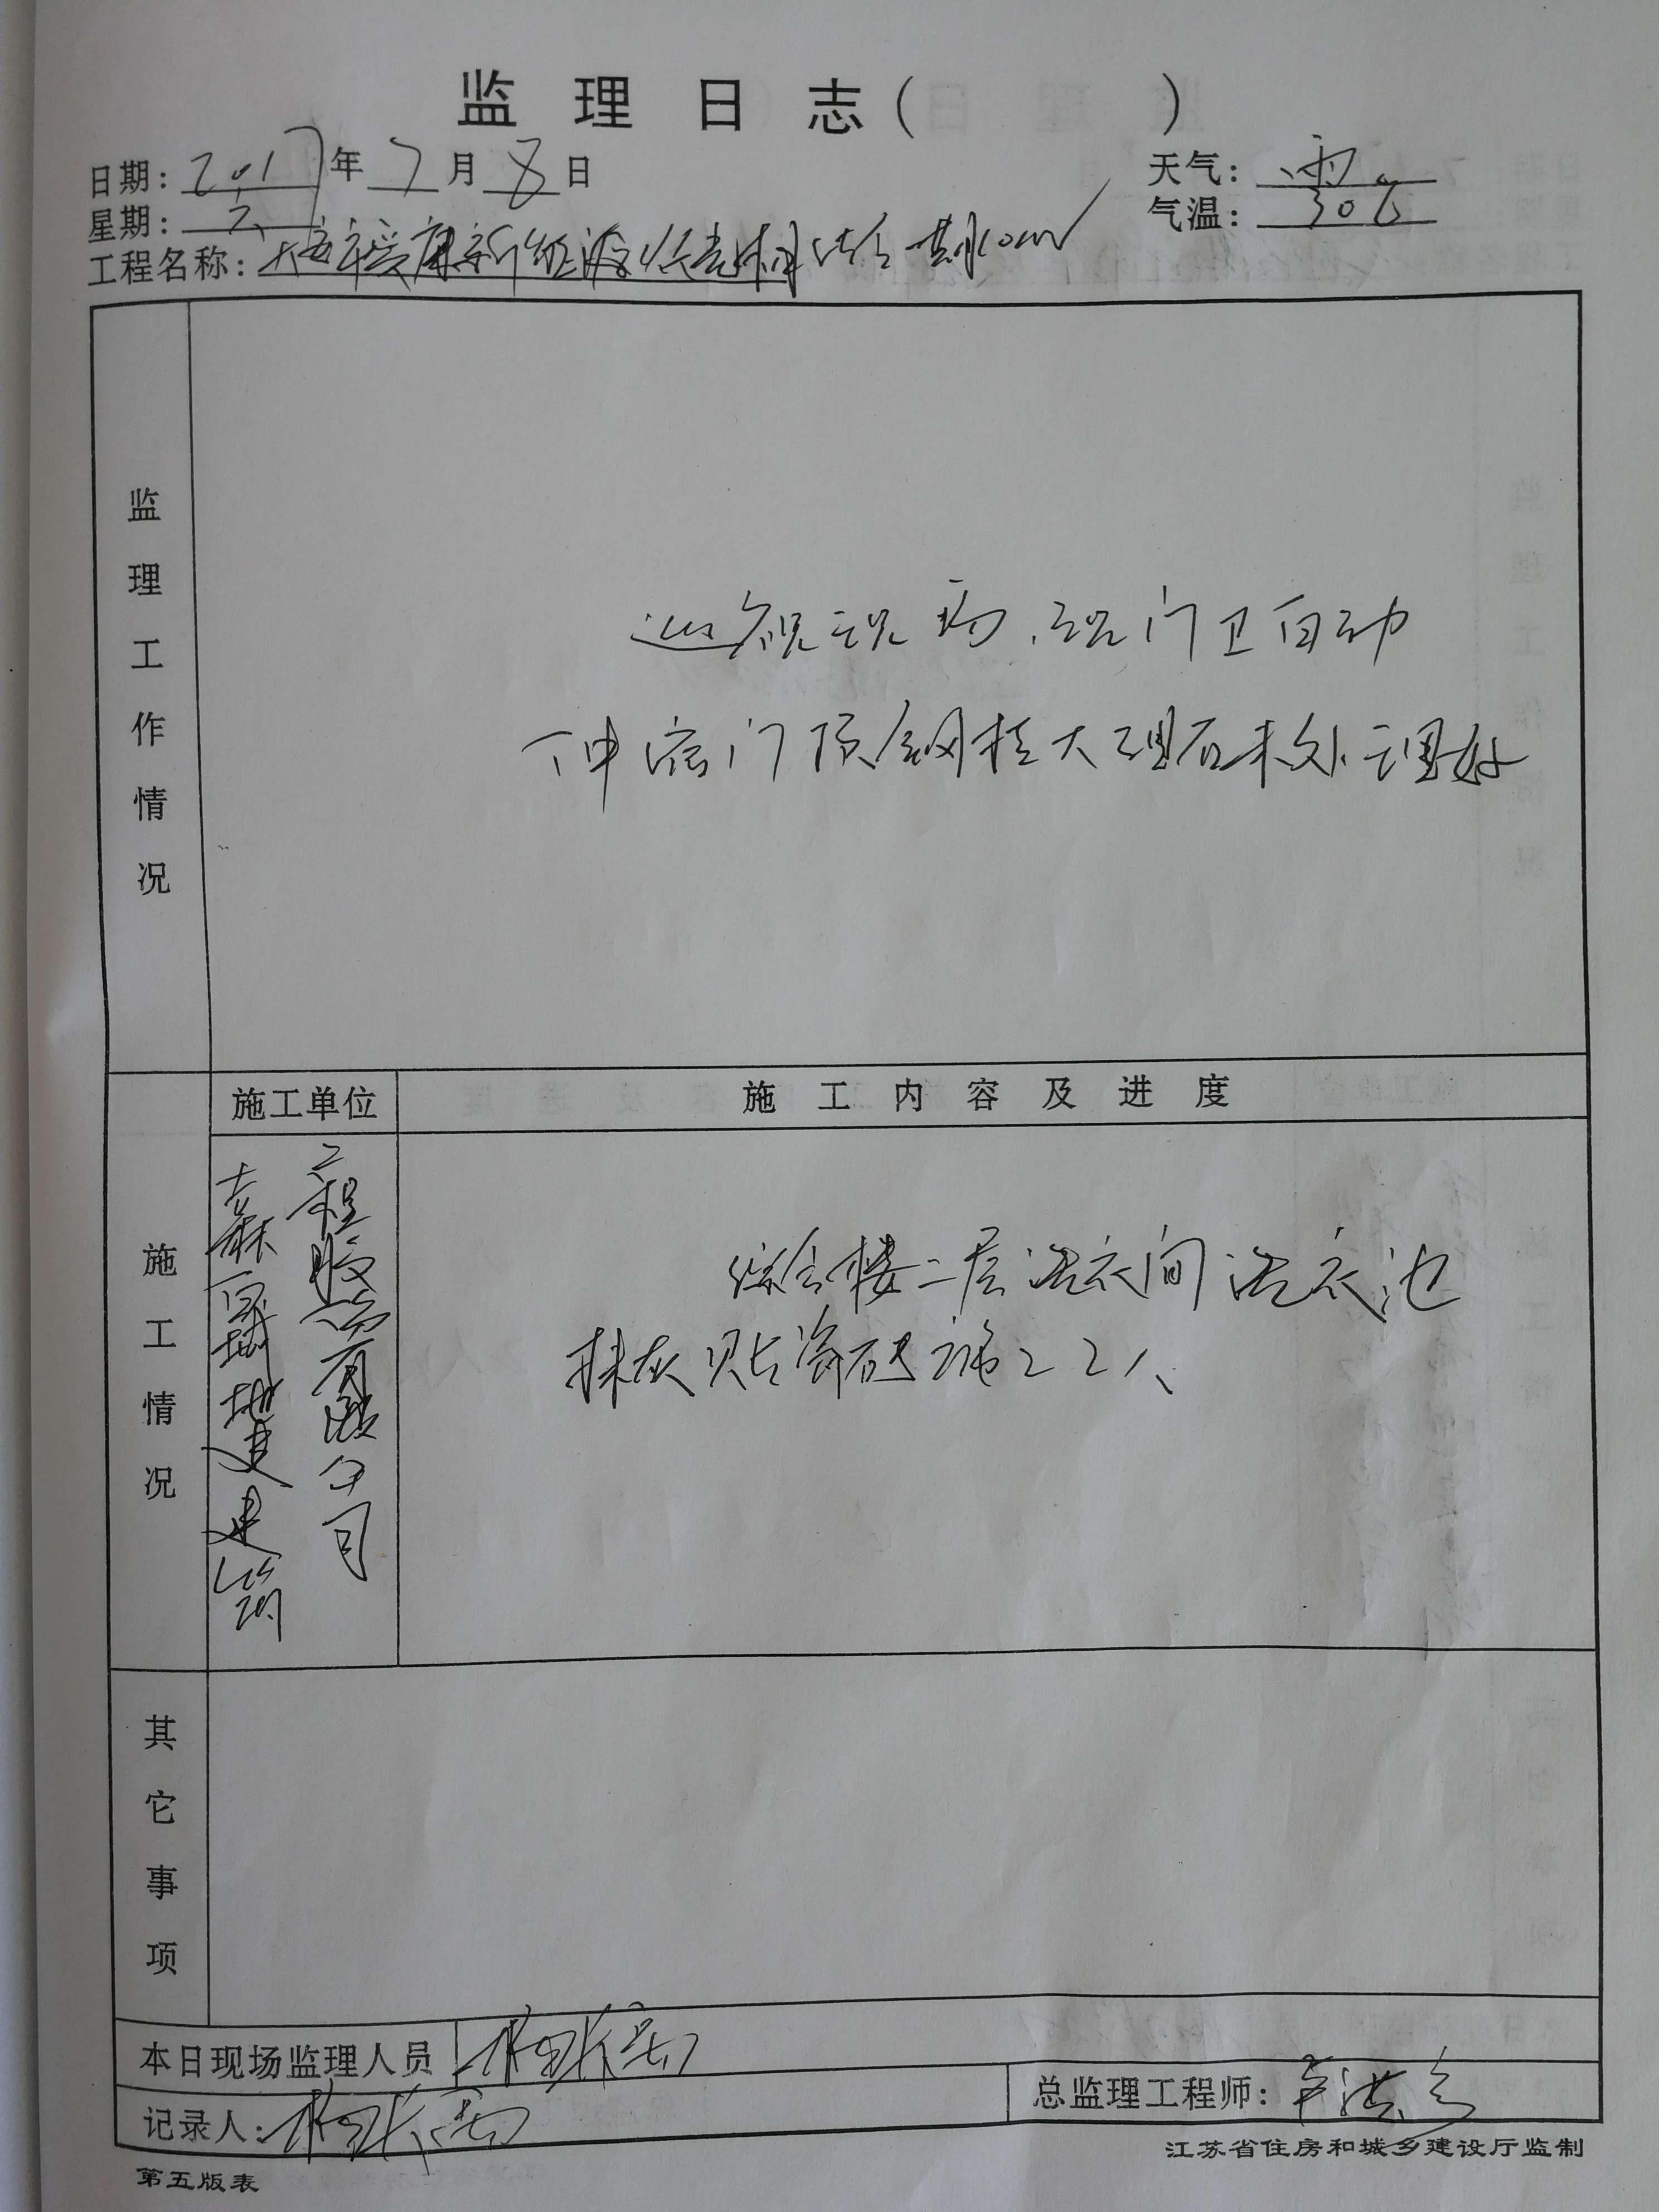 监理日志( )
日期: 2017年7月8日 天气: 雨
星期: 六 气温: 30℃
工程名称:
监理工作情况
巡视现场,现门卫自动
伸缩门顶钢柱大理石未处理好
施工单位 施工内容及进度
施工情况
地建建筑
工程股份有限公司
综合楼二层洗衣间洗衣池
抹灰贴瓷砖施工2人
其它事项
本日现场监理人员
记录人: 总监理工程师:
江苏省住房和城乡建设厅监制
第五版表